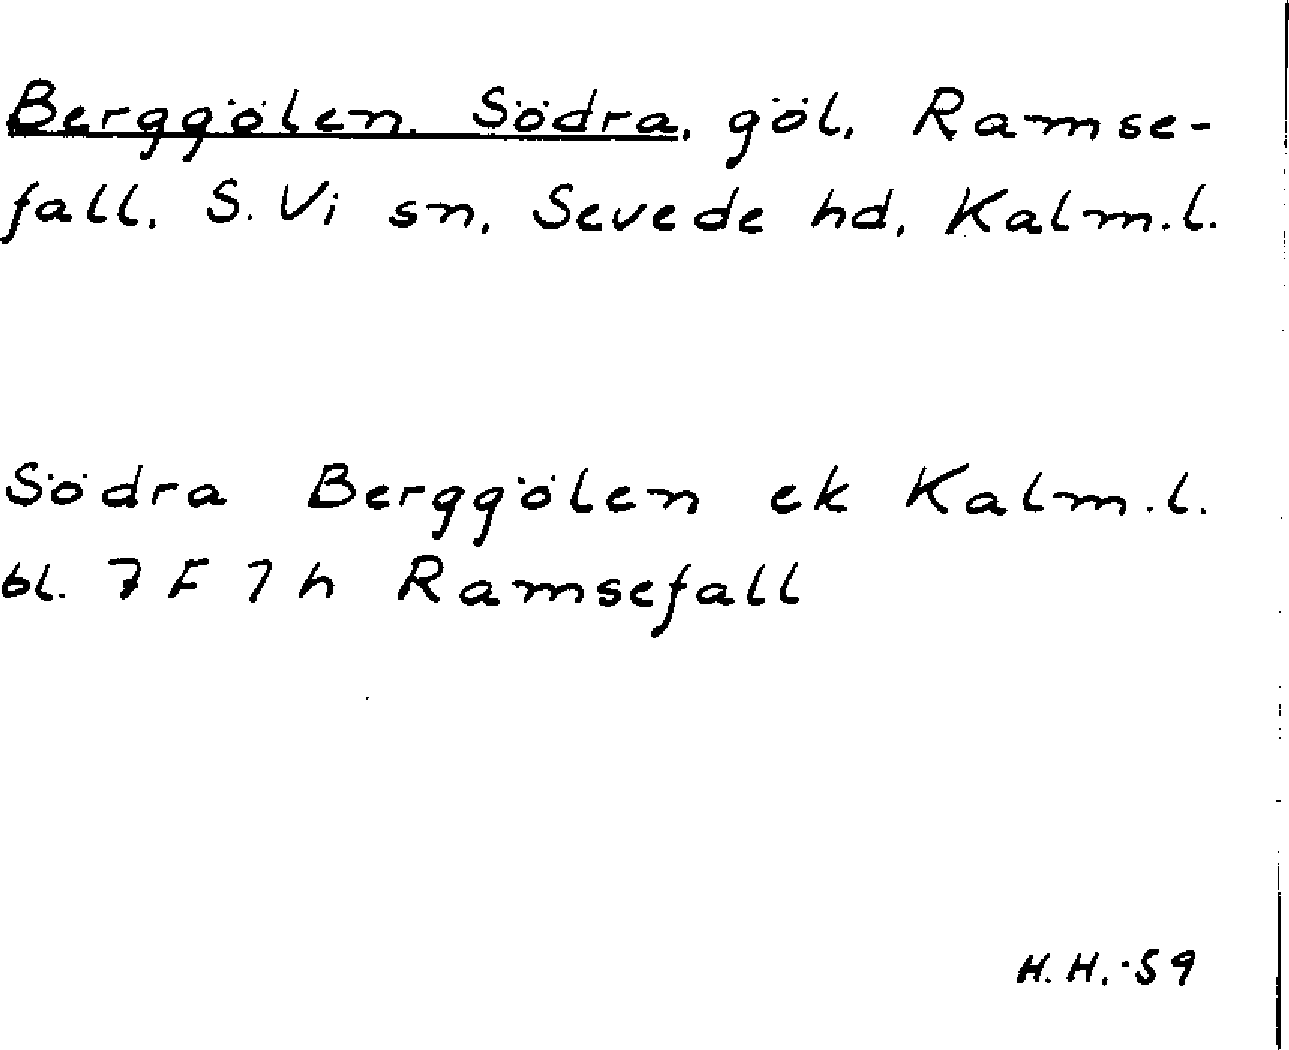 Berggölen, Södra, göl, Ramse-
fall, S. Vi sn, Sevede hd, Kalm.l.
Södra Berggölen ek Kalm.l.
bl. 7 F 7 h Ramsefall
H. H. -59